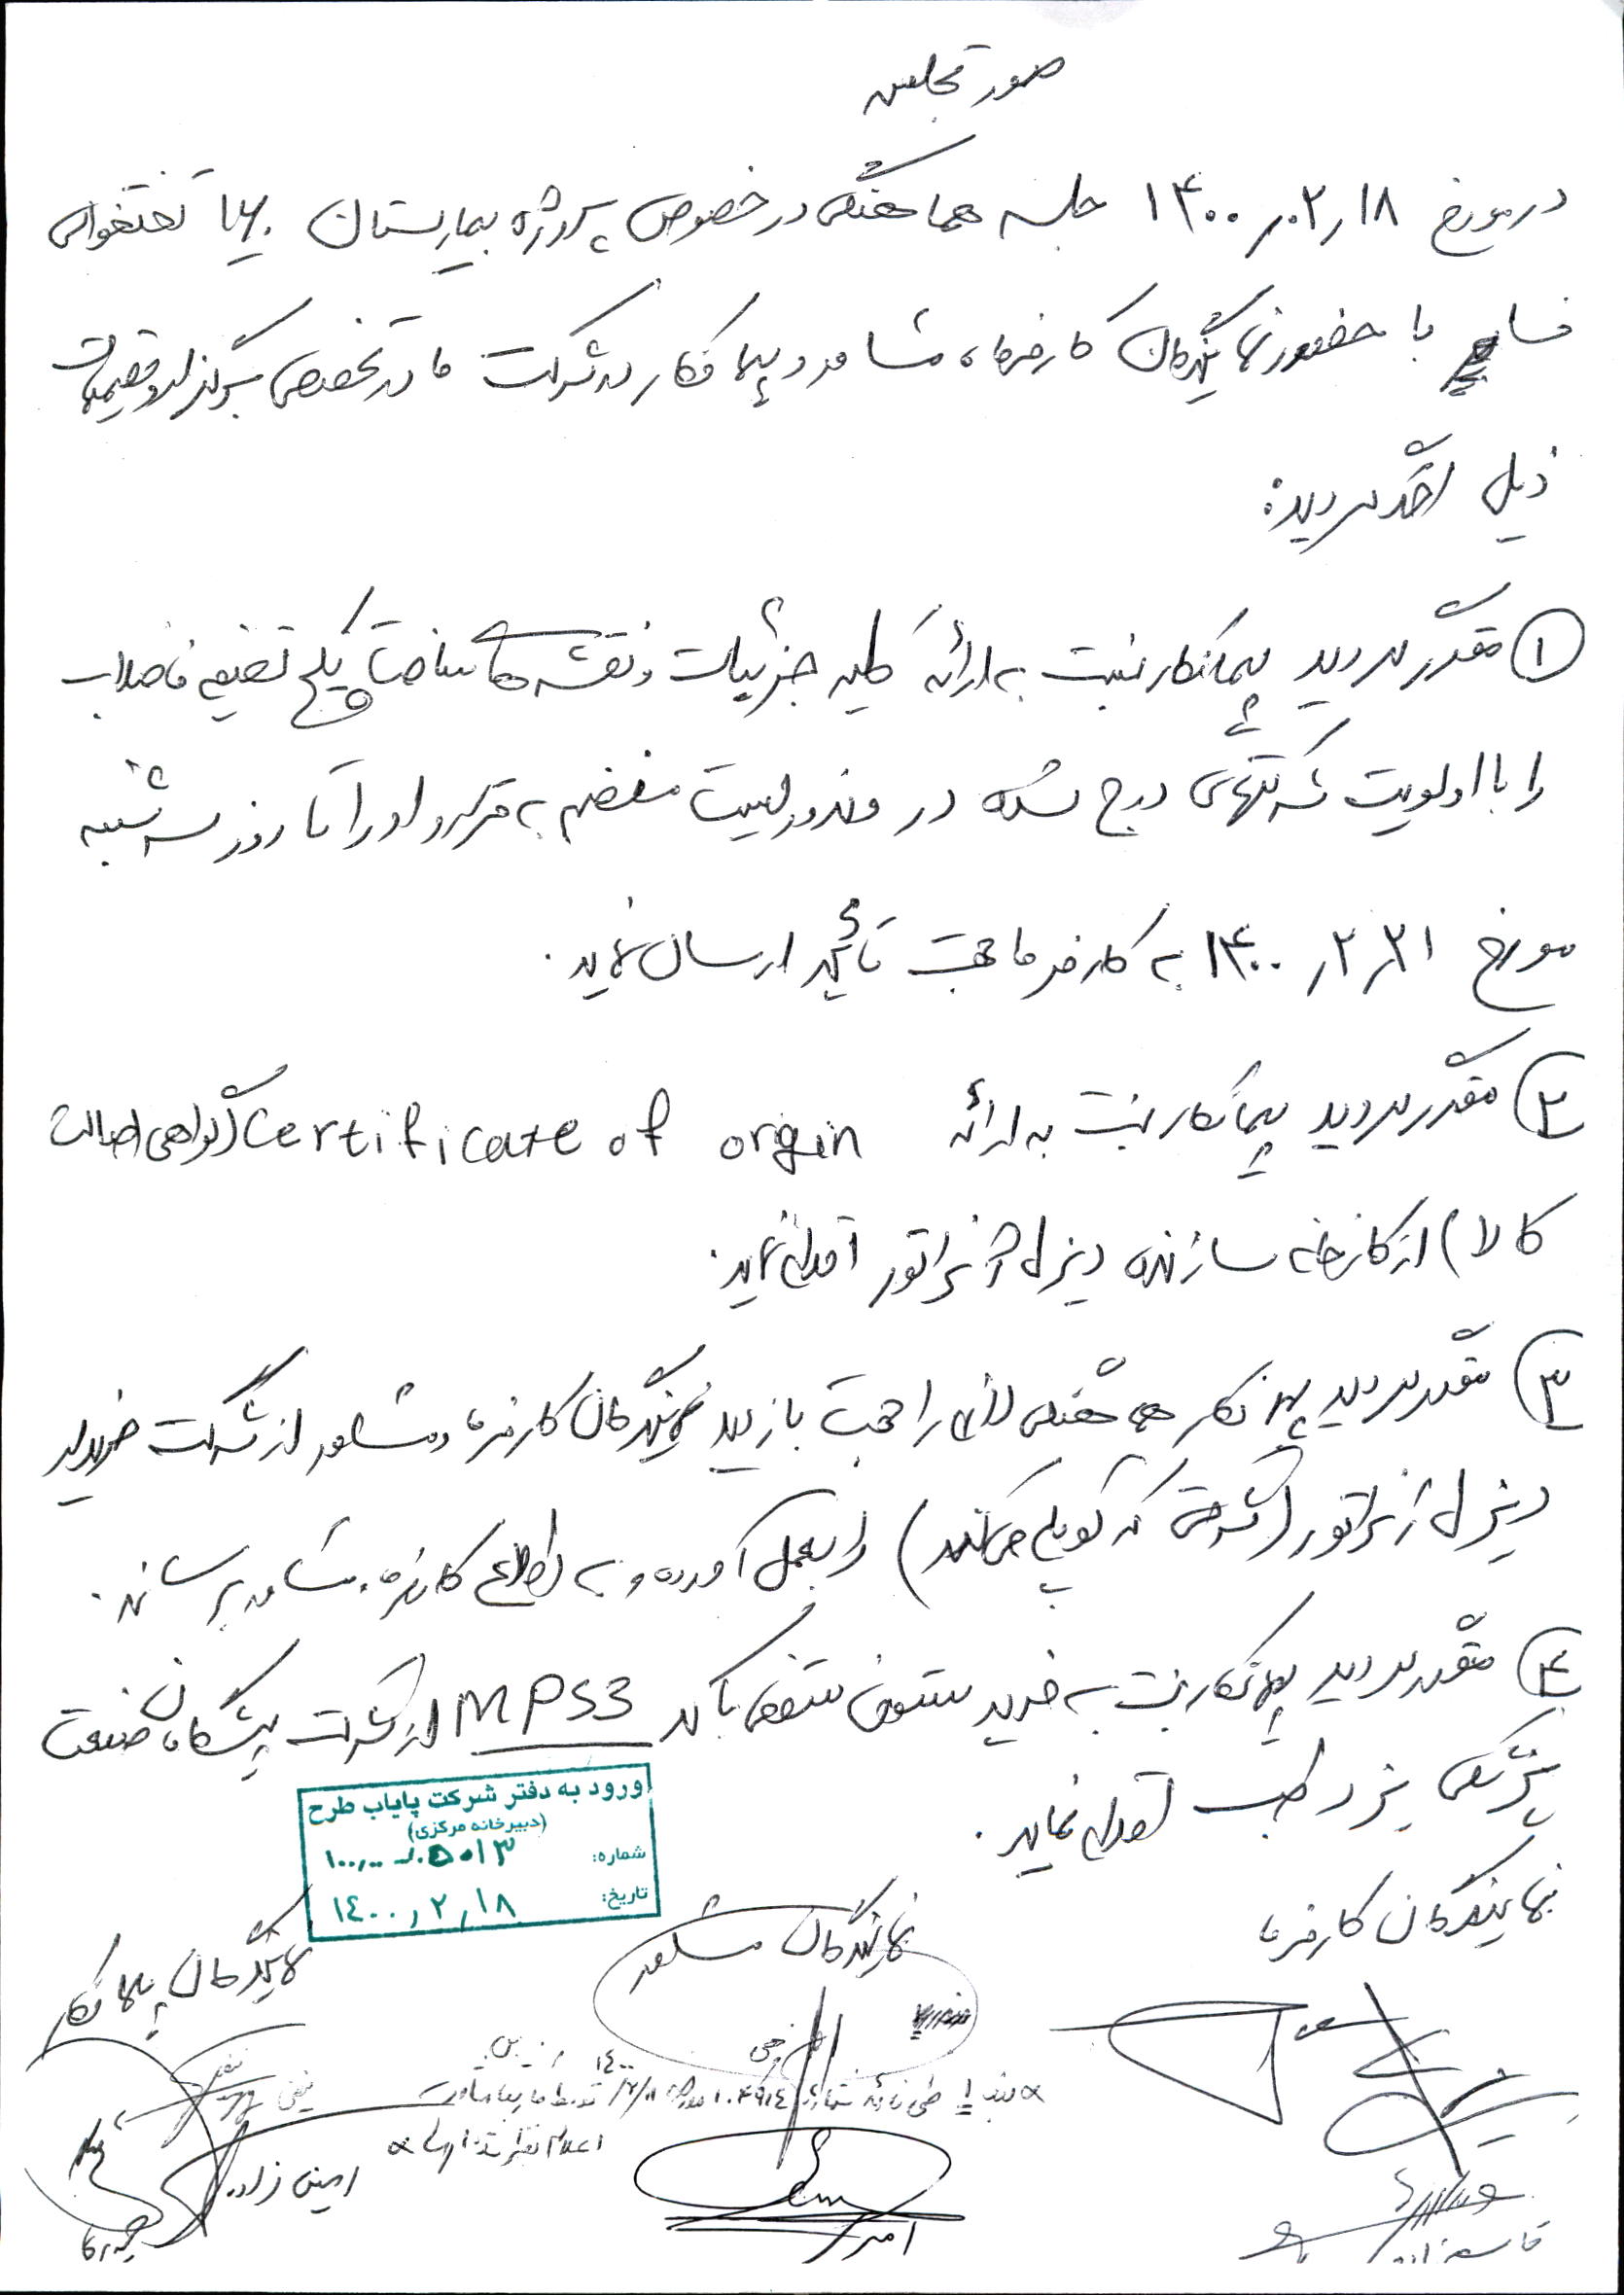 صورتجلسه
در مورخ ۱۴۰۰٫۰۲٫۱۸ جلسه هماهنگی در خصوص پروژه بیمارستان ۱۶۰ تختخوابی
فسا با حضور نمایندگان کارفرما، مشاور و پیمانکار در شرکت مادر تخصصی برگزار و تصمیمات
ذیل اخذ گردید:
① مقرر گردید پیمانکار نسبت به ارائه کلیه جزئیات و نقشه های ساخت پکیج تصفیه فاضلاب
را با اولویت شرکتهای درج شده در وندور لیست منضم به قرارداد را تا روز سه شنبه
مورخ ۱۴۰۰٫۲٫۲۱ به کارفرما جهت تائید ارسال نماید.
② مقرر گردید پیمانکار نسبت به ارائه Certificate of origin (گواهی اصالت
کالا) از کارخانه سازنده دیزل ژنراتور اقدام نماید.
③ مقرر گردید پیمانکار هماهنگی لازم را جهت بازدید نمایندگان کارفرما و مشاور از شرکت خریدار
دیزل ژنراتور (شرکتی که کوپل میکند) را بعمل آورده و به اطلاع کارفرما و مشاور برساند.
④ مقرر گردید پیمانکار نسبت به خرید ستون سقفی با کد MPS3 از شرکت پیشگامان صنعت
پزشکی یزد طب اقدام نماید.
ورود به دفتر شرکت پایاب طرح
(دبیرخانه مرکزی)
شماره: ۱۰۰٫۰۰-۰۵۰۱۳
تاریخ: ۱۴۰۰٫۲٫۱۸
نمایندگان کارفرما
نمایندگان مشاور
نمایندگان پیمانکار
* بند ۱ طی نامه شماره
اعلام نظر شده است *
امینی زاده
قاسم زاده